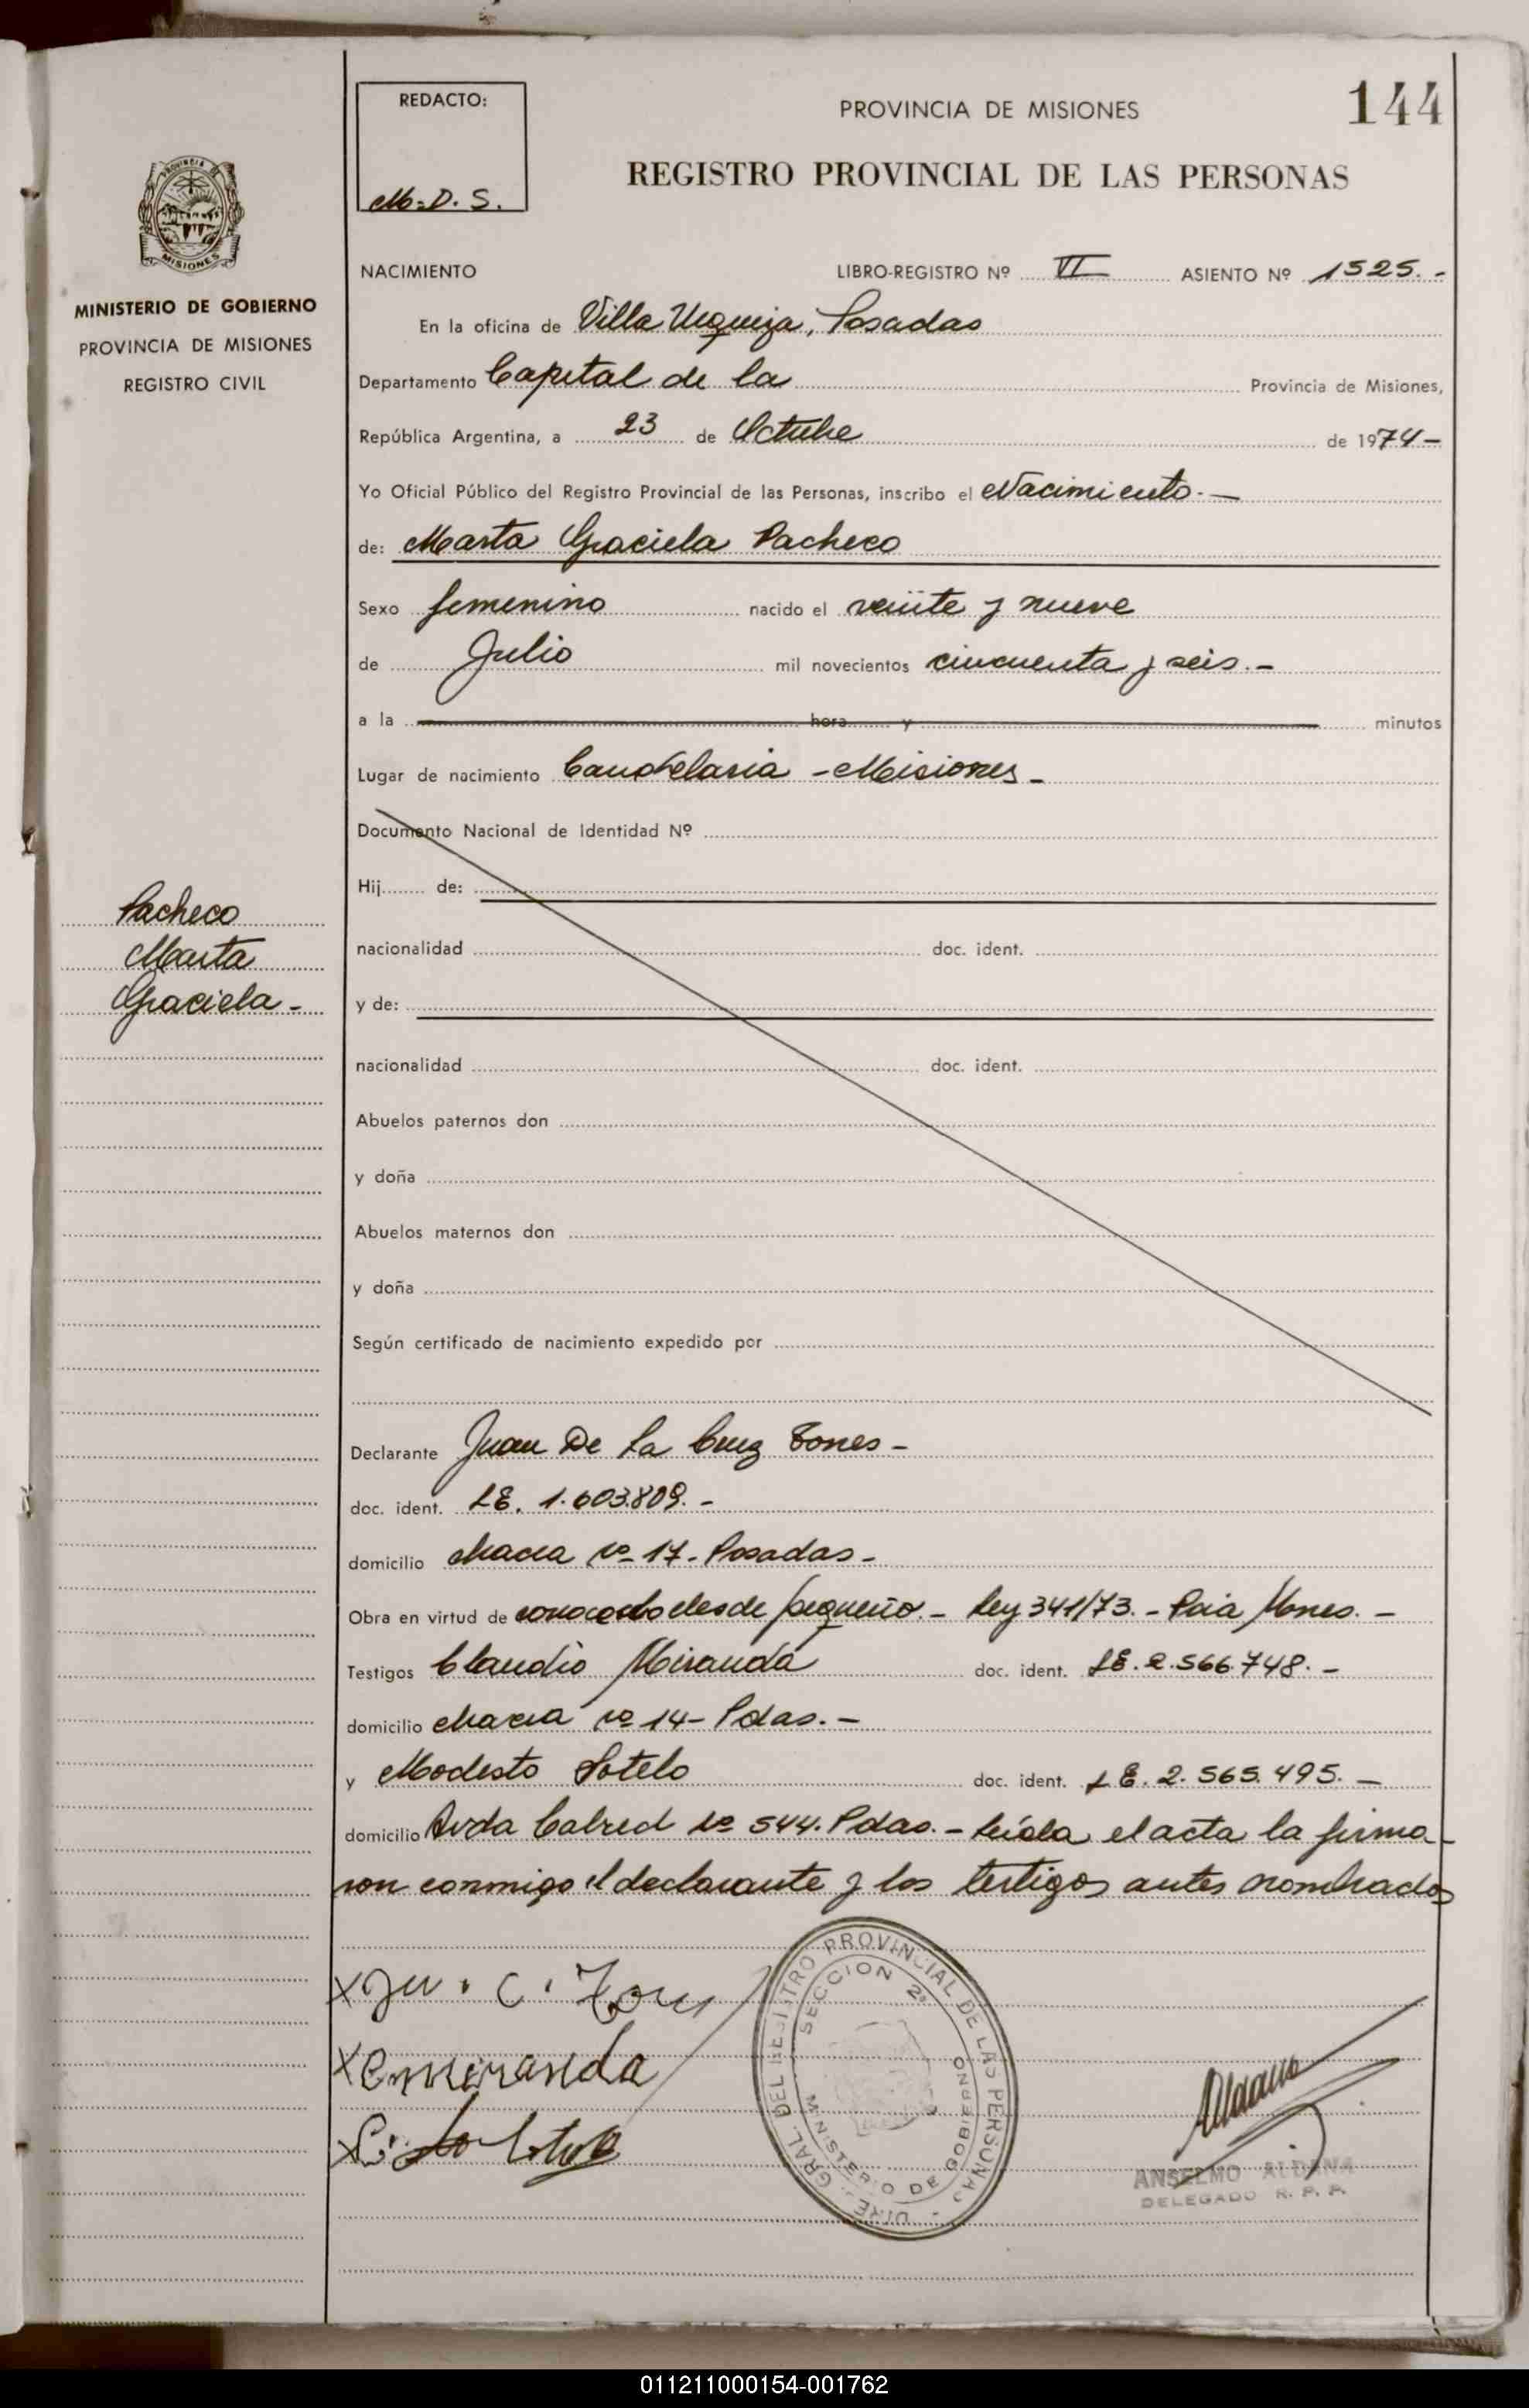 144
REDACTO:
M.D.S.
PROVINCIA DE MISIONES
REGISTRO PROVINCIAL DE LAS PERSONAS
PROVINCIA DE
MISIONES
MINISTERIO DE GOBIERNO
PROVINCIA DE MISIONES
REGISTRO CIVIL
NACIMIENTO LIBRO-REGISTRO Nº VI ASIENTO Nº 1525.-
En la oficina de Villa Urquiza, Posadas
Departamento Capital de la Provincia de Misiones,
República Argentina, a 23 de Octubre de 1974-
Yo Oficial Público del Registro Provincial de las Personas, inscribo el Nacimiento.-
de: Marta Graciela Pacheco
Sexo femenino nacido el veinte y nueve
de Julio mil novecientos cincuenta y seis.-
a la hora y minutos
Lugar de nacimiento Candelaria - Misiones -
Documento Nacional de Identidad Nº
Hij de:
Pacheco
Marta
Graciela -
nacionalidad doc. ident.
y de:
nacionalidad doc. ident.
Abuelos paternos don
y doña
Abuelos maternos don
y doña
Según certificado de nacimiento expedido por
Declarante Juan De La Cruz Torres -
doc. ident. LE. 1.603.809. -
domicilio chacra nº 17 - Posadas -
Obra en virtud de desde pequeño. - Ley 341/73. -
Testigos Claudio Miranda doc. ident. LE. 2.566.748. -
domicilio chacra nº 14 - Pdas. -
y Modesto Sotelo doc. ident. LE. 2.565.495. -
domicilio Avda Cabred nº 544. Pdas. - leída el acta la firma
ron conmigo el declarante y los testigos antes nombrados
DIRE. GRAL. DEL REGISTRO PROVINCIAL DE LAS PERSONAS
SECCION 2ª
MINISTERIO DE GOBIERNO
C. Miranda
ANSELMO ALDANA
DELEGADO R. P. P.
011211000154-001762